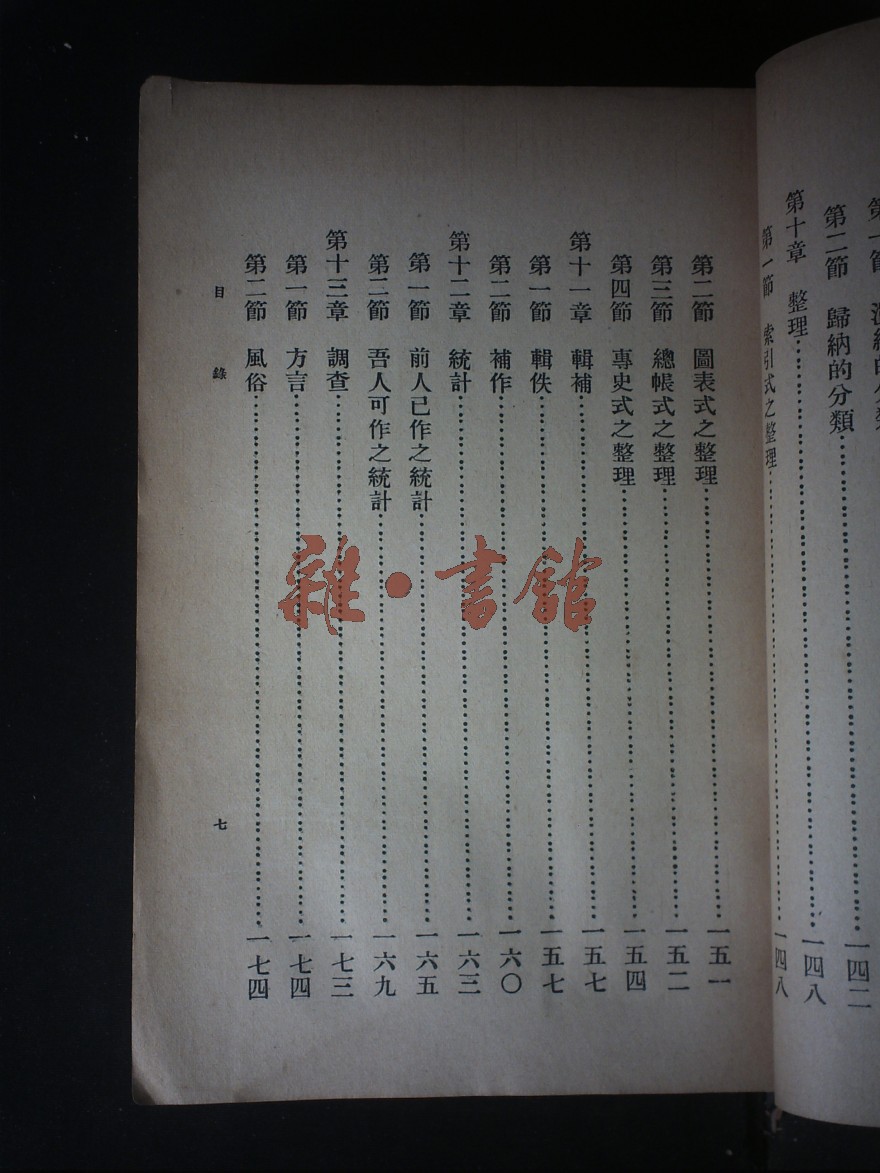 第一節
第二節 歸納的分類……一四二
第十章 整理……一四八
第一節 索引式之整理……一四八
第二節 圖表式之整理……一五一
第三節 總帳式之整理……一五二
第四節 專史式之整理……一五四
第十一章 輯補……一五七
第一節 輯佚……一五七
第二節 補作……一六〇
第十二章 統計……一六三
第一節 前人已作之統計……一六五
第二節 吾人可作之統計……一六九
第十三章 調查……一七三
第一節 方言……一七四
第二節 風俗……一七四
目錄
七
雜·書館